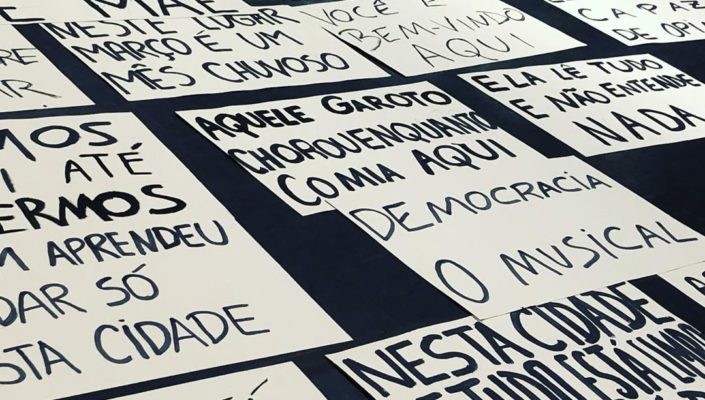 MÃE
NESTE LUGAR
MARÇO É UM
MÊS CHUVOSO
VOCÊ É
BEM-VINDO
AQUI
CAPAZ
DE
AQUELE GAROTO
CHOROU ENQUANTO
COMIA AQUI
ELA LÊ TUDO
E NÃO ENTENDE
NADA
DEMOCRACIA
O MUSICAL
ATÉ
APRENDEU
SÓ
CIDADE
NESTA CIDADE
TUDO ESTÁ